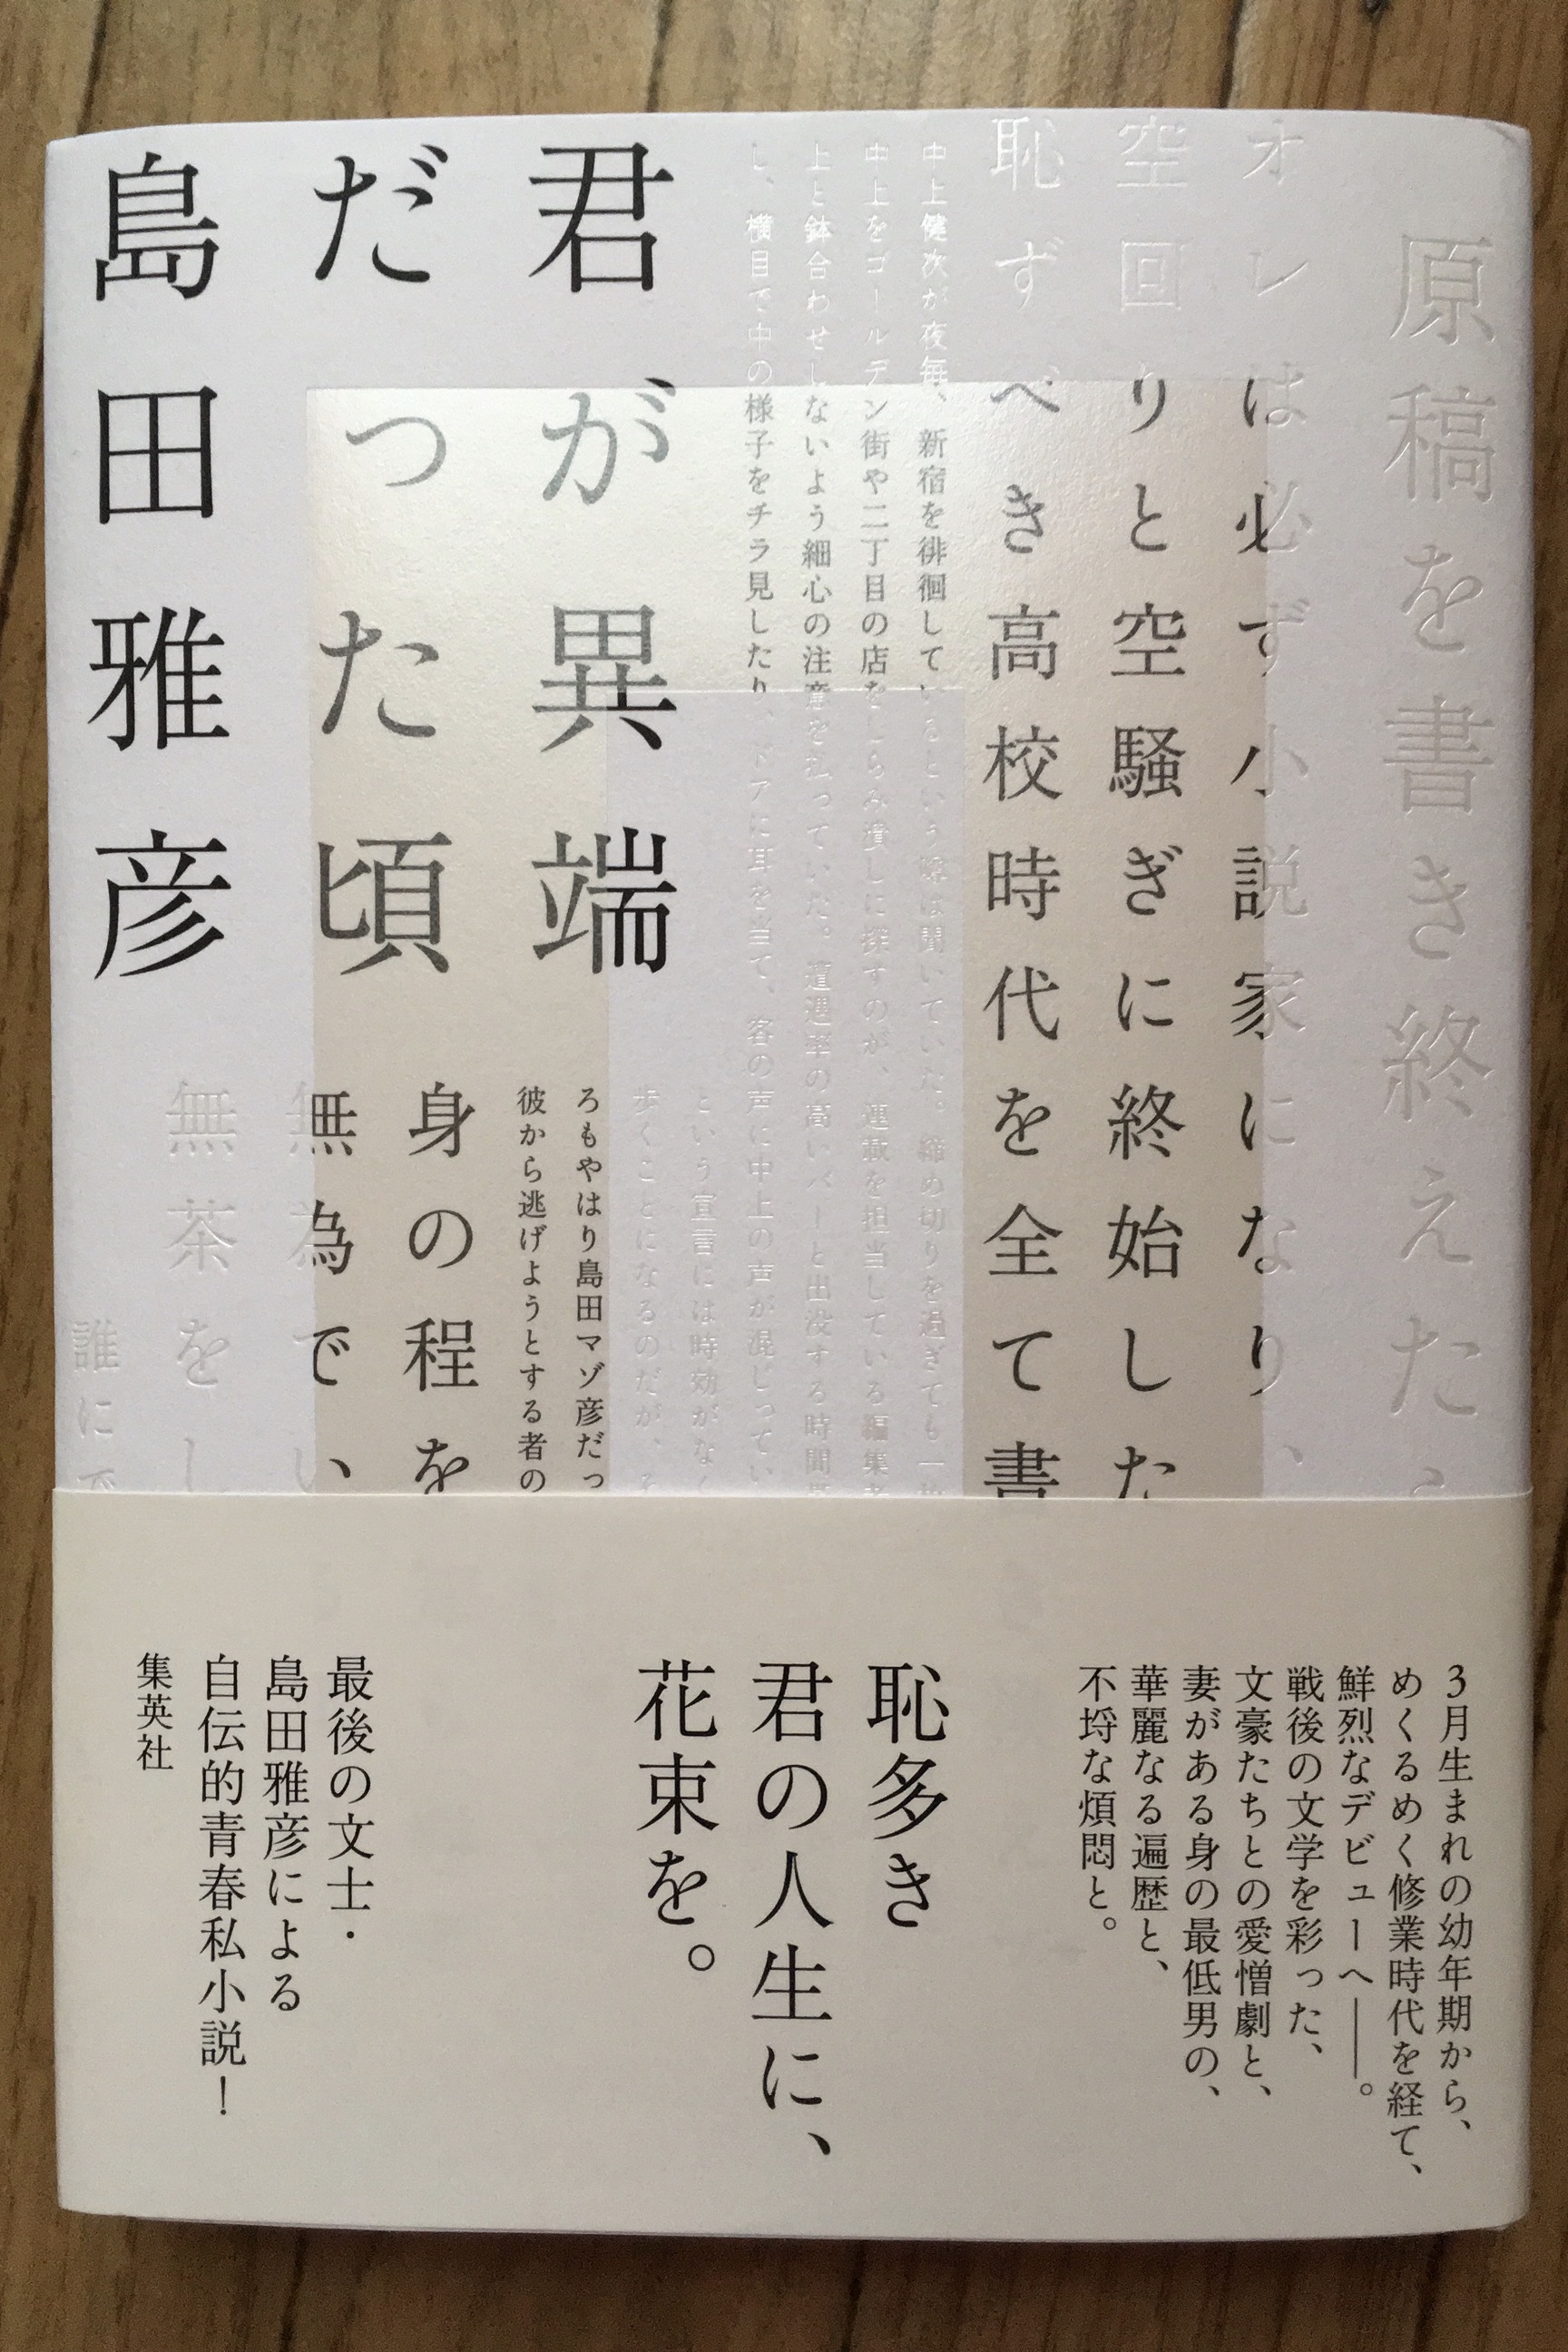 原稿を書き終えた
オレは必ず小説家になり、
空回りと空騒ぎに終始した
恥ずべき高校時代を全て書
中上健次が夜毎、新宿を徘徊しているという噂は聞いていた。締め切りを過ぎても一
中上をゴールデン街や二丁目の店をしらみ潰しに探すのが、連載を担当している編集者
上と鉢合わせしないよう細心の注意を払っていた。遭遇率の高いバーと出没する時間
し、横目で中の様子をチラ見したり、ドアに耳を当て、客の声に中上の声が混じってい
という宣言には時効がなく
歩くことになるのだが、そ
君が異端
だった頃
島田雅彦
ろもやはり島田マゾ彦だっ
彼から逃げようとする者の
身の程を
無為で、い
無茶をし
誰にで
3月生まれの幼年期から、
めくるめく修業時代を経て、
鮮烈なデビューへ――。
戦後の文学を彩った、
文豪たちとの愛憎劇と、
妻がある身の最低男の、
華麗なる遍歴と、
不埒な煩悶と。
恥多き
君の人生に、
花束を。
最後の文士・
島田雅彦による
自伝的青春私小説！
集英社